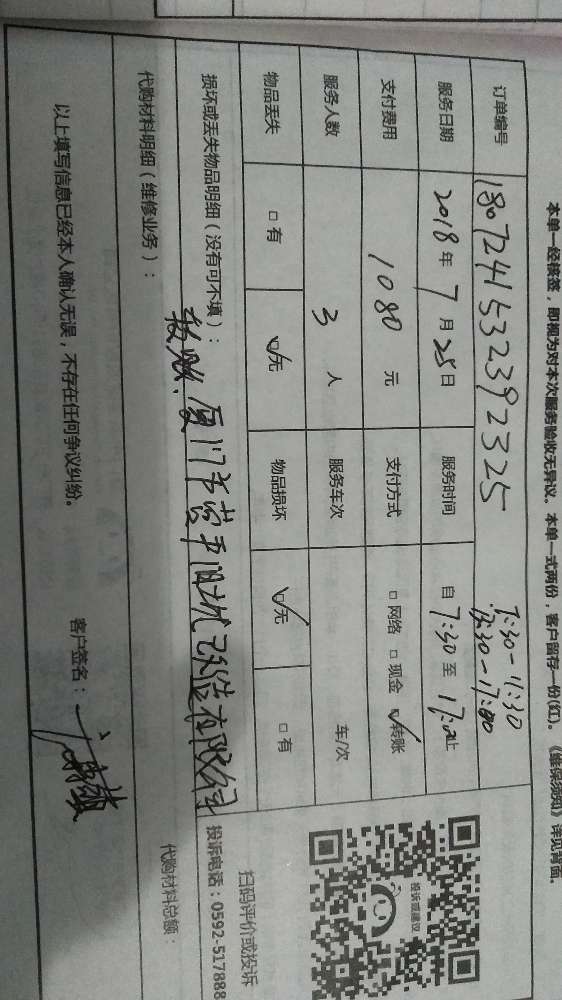 本单一经核签，即视为对本次服务验收无异议。本单一式两份，客户留存一份(红)。《维保须知》详见背面。
7:30-11:30
订单编号 1807241532392325 13:30-17:00
服务日期 2018年7月25日 服务时间 自7:30至17:00止
支付费用 1080元 支付方式 □网络 □现金 ☑转账
服务人数 3人 服务车次 车/次
物品丢失 □有 ☑无 物品损坏 ☑无 □有
损坏或丢失物品明细（没有可不填）：
转账：厦门市营平旧城改造有限公司
代购材料明细（维修业务）：
代购材料总额：
以上填写信息已经本人确认无误，不存在任何争议纠纷。
客户签名：
投诉或建议
扫码评价或投诉
投诉电话：0592-517888